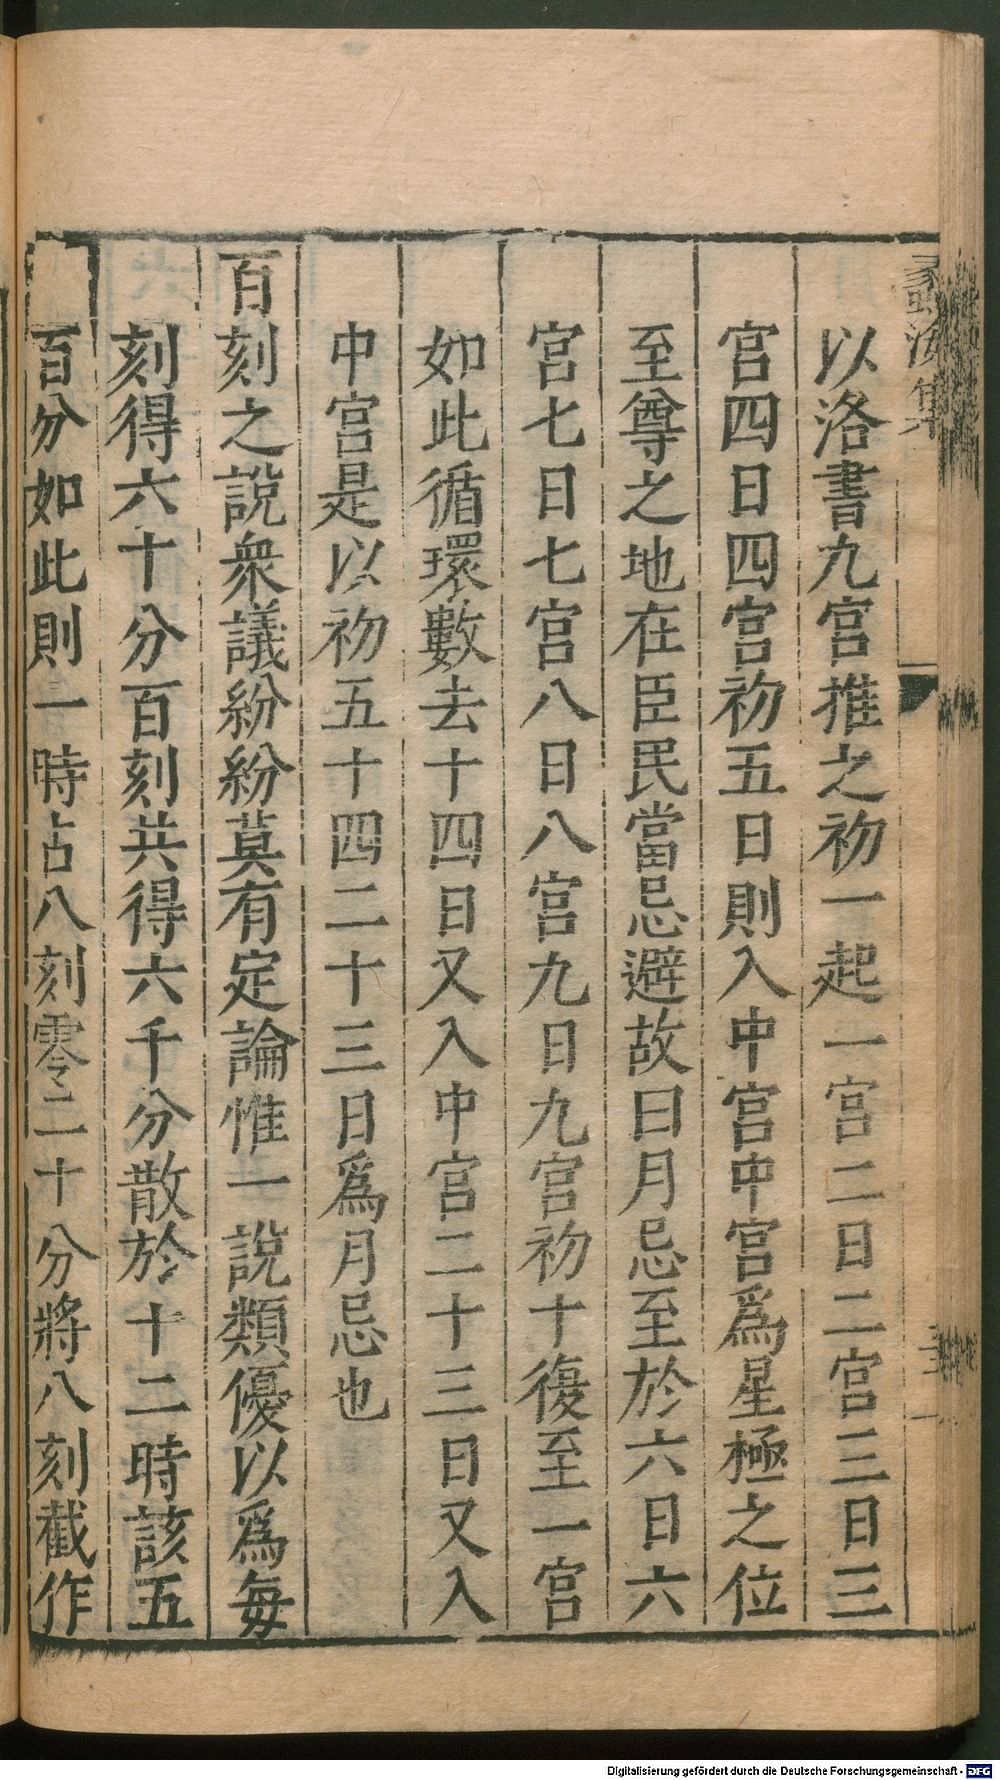 蠡海集
以洛書九宮推之初一起一宮二日二宮三日三
宮四日四宮初五日則入中宮中宮爲星極之位
至尊之地在臣民當忌避故曰月忌至於六日六
宮七日七宮八日八宮九日九宮初十復至一宮
如此循環數去十四日又入中宮二十三日又入
中宮是以初五十四二十三日爲月忌也
百刻之說衆議紛紛莫有定論惟一說類優以爲每
刻得六十分百刻共得六千分散於十二時該五
百分如此則一時占八刻零二十分將八刻截作
Digitalisierung gefördert durch die Deutsche Forschungsgemeinschaft - DFG